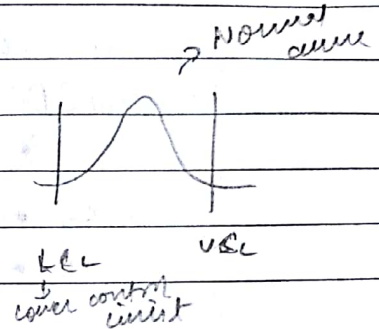 Normal
curve
LCL
UCL
Lower control
limit